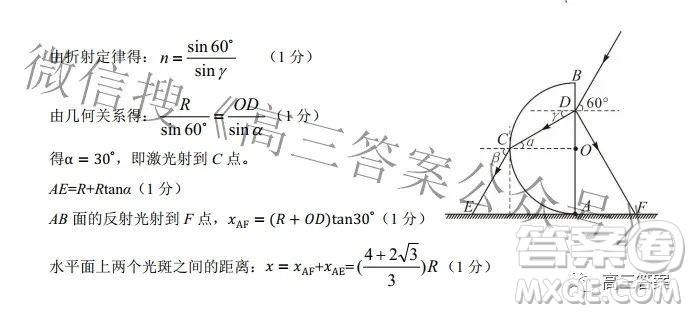 由折射定律得：n=sin60°/sinγ （1 分）
由几何关系得：R/sin60°=OD/sinα（1 分）
得α=30°，即激光射到 C 点。
AE=R+Rtanα（1 分）
AB 面的反射光射到 F 点，x_AF=(R+OD)tan30°（1 分）
水平面上两个光斑之间的距离：x=x_AF+x_AE=((4+2√3)/3)R（1 分）
B
D
60°
γ
C
α
β
O
E
A
F
微信搜《高三答案公众号》
答案圈
高三答案
MXQE.COM